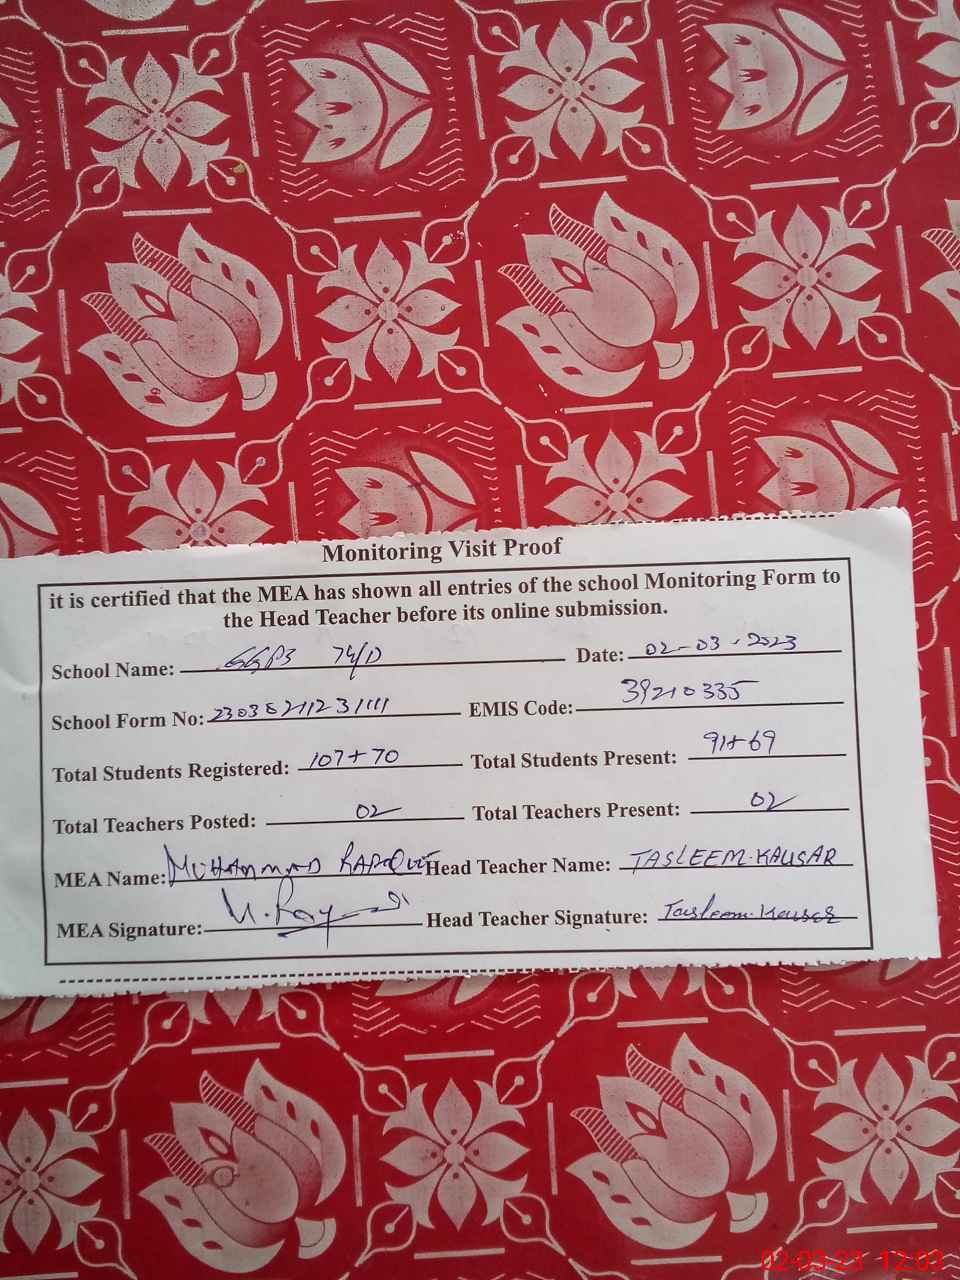 Monitoring Visit Proof
it is certified that the MEA has shown all entries of the school Monitoring Form to
the Head Teacher before its online submission.
School Name: GGPS 74/D Date: 02-03-2023
School Form No: EMIS Code: 39210335
Total Students Registered: 107+70 Total Students Present: 91+69
Total Teachers Posted: 02 Total Teachers Present: 02
MEA Name: MUHAMMAD Head Teacher Name: TASLEEM.KAUSAR
MEA Signature: Head Teacher Signature: Tasleem.Kausar
02-03-23 12:03